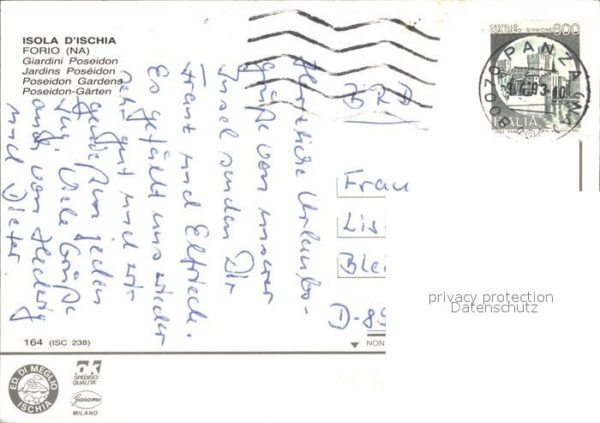 ISOLA D'ISCHIA
FORIO (NA)
Giardini Poseidon
Jardins Poséidon
Poseidon Gardens
Poseidon-Gärten
Herzliche Urlaubs-
grüße von unserer
Insel senden Dir
Franz und Elfriede.
Es gefällt uns wieder
sehr gut und wir
genießen jeden
Tag. Viele Grüße
auch von Hedwig
und Dieter
BRD
CASTELLO
SCALIGERO SIRMIONE
800
ITALIA
80070 PANZA (NA)
Frau
Lis
Blei
D-89
privacy protection
Datenschutz
164 (ISC 238)
NON
ED. DI MEGLIO
ISCHIA
ak
SPEDISCI
QUALITA'
Garami
MILANO